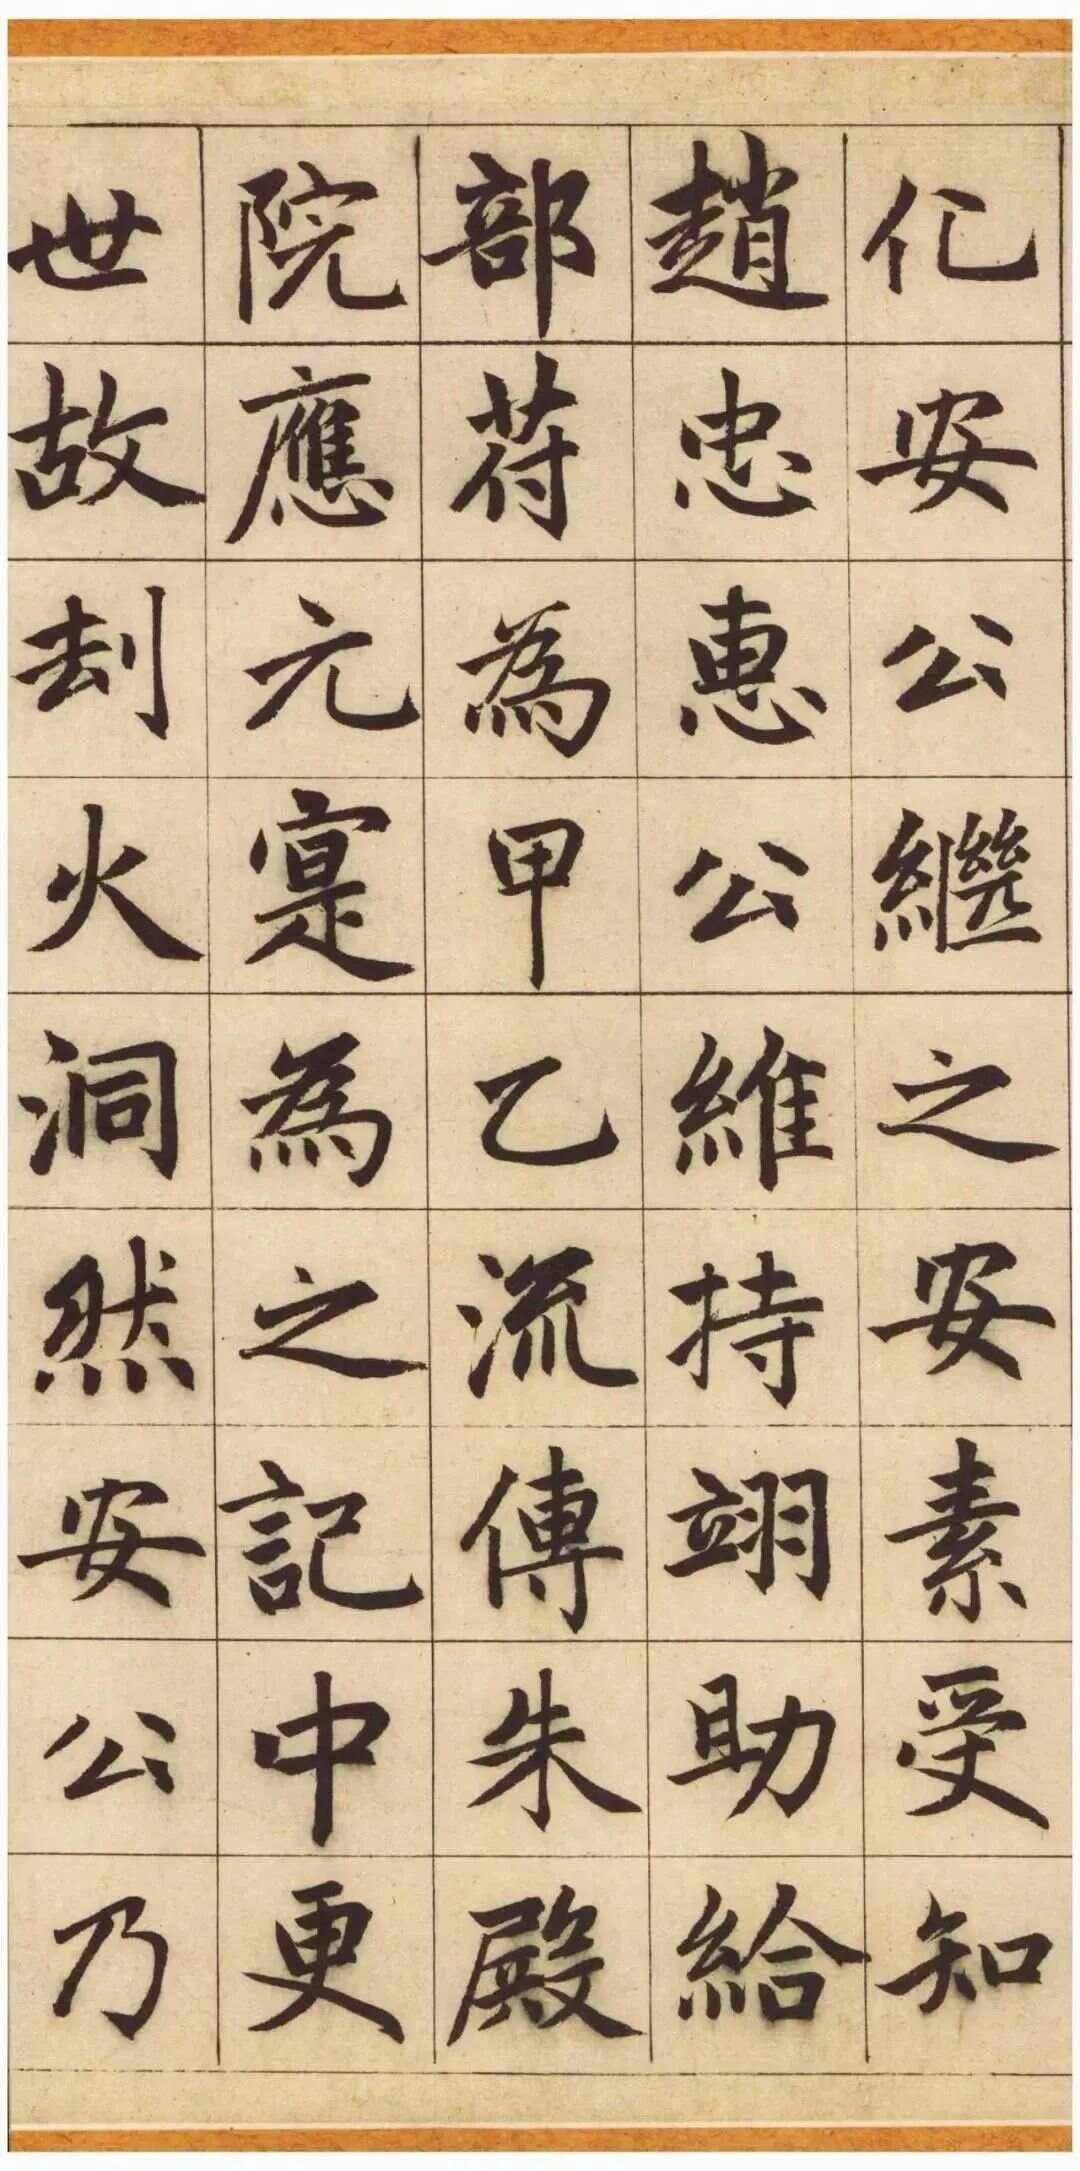 化安公繼之安素受知
趙忠惠公維持翊助給
部符為甲乙流傳朱殿
院應元寔為之記中更
世故刦火洞然安公乃